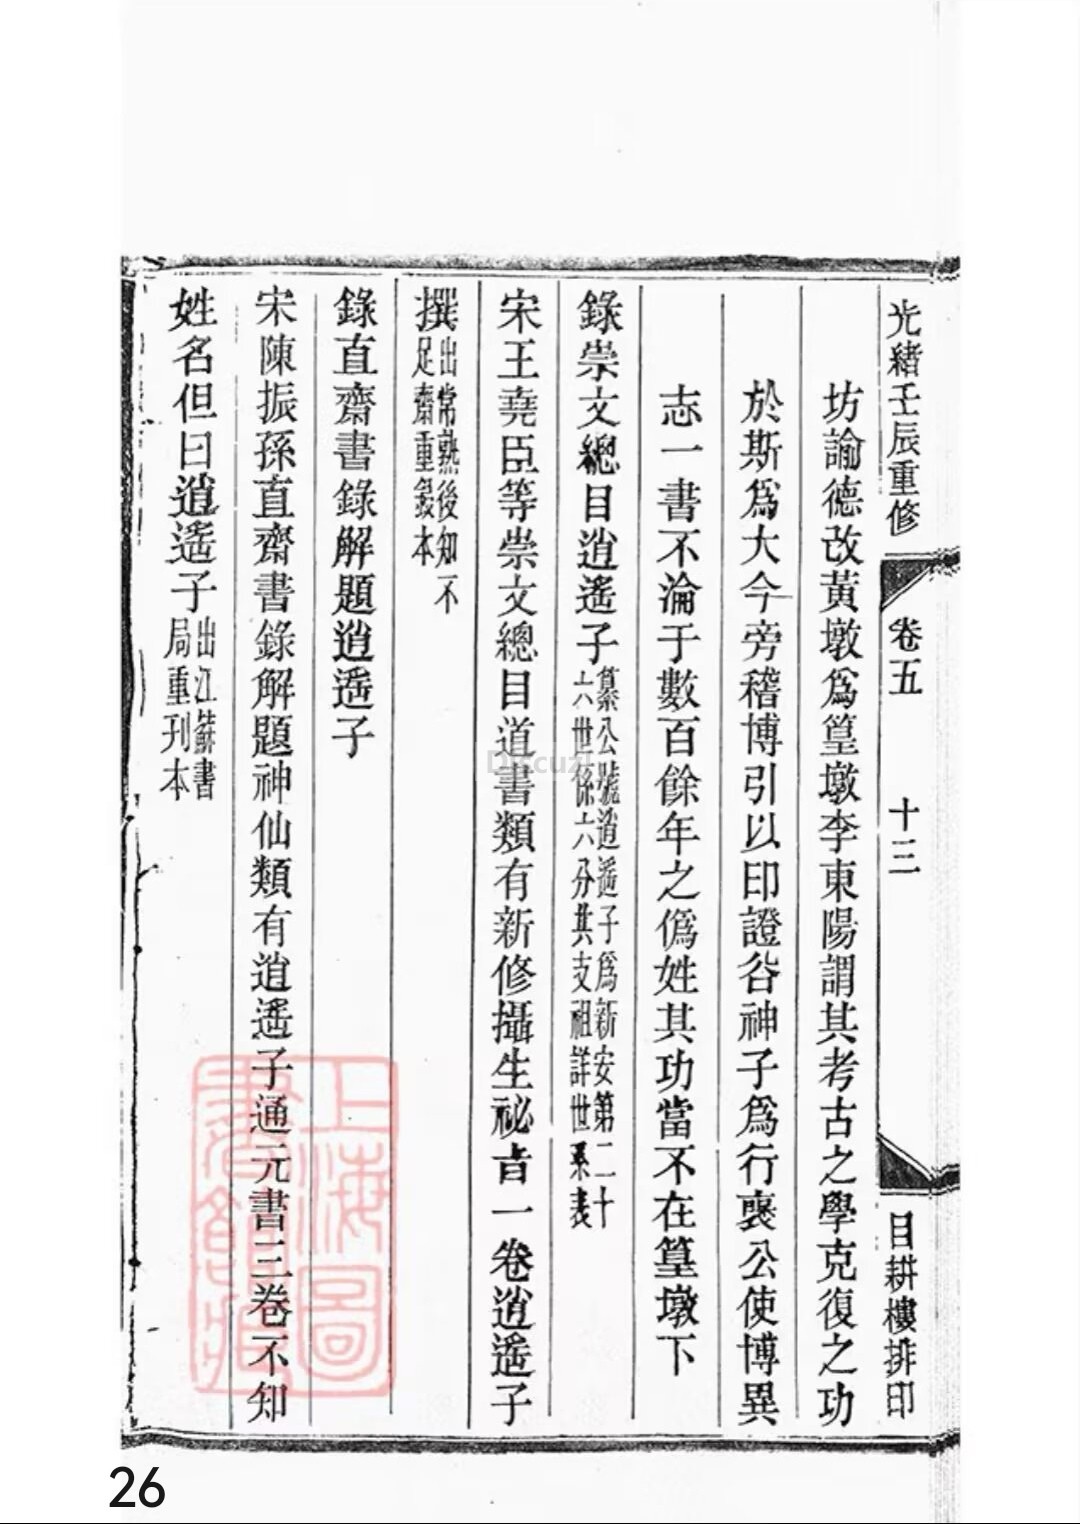 光緒壬辰重修
卷五
十三
目耕樓排印
坊諭德改黃墩爲篁墩李東陽謂其考古之學克復之功
於斯爲大今旁稽博引以印證谷神子爲行褒公使博異
志一書不淪于數百餘年之僞姓其功當不在篁墩下
錄崇文總目逍遙子
纂公號逍遙子爲新安第二十
六世係六分其支祖詳世系表
宋王堯臣等崇文總目道書類有新修攝生祕旨一卷逍遙子
撰
出常熟後知不
足齋重錢本
錄直齋書錄解題逍遙子
宋陳振孫直齋書錄解題神仙類有逍遙子通元書三卷不知
姓名但曰逍遙子
出江蘇書
局重刊本
上海圖
書館藏
Discuz!
26